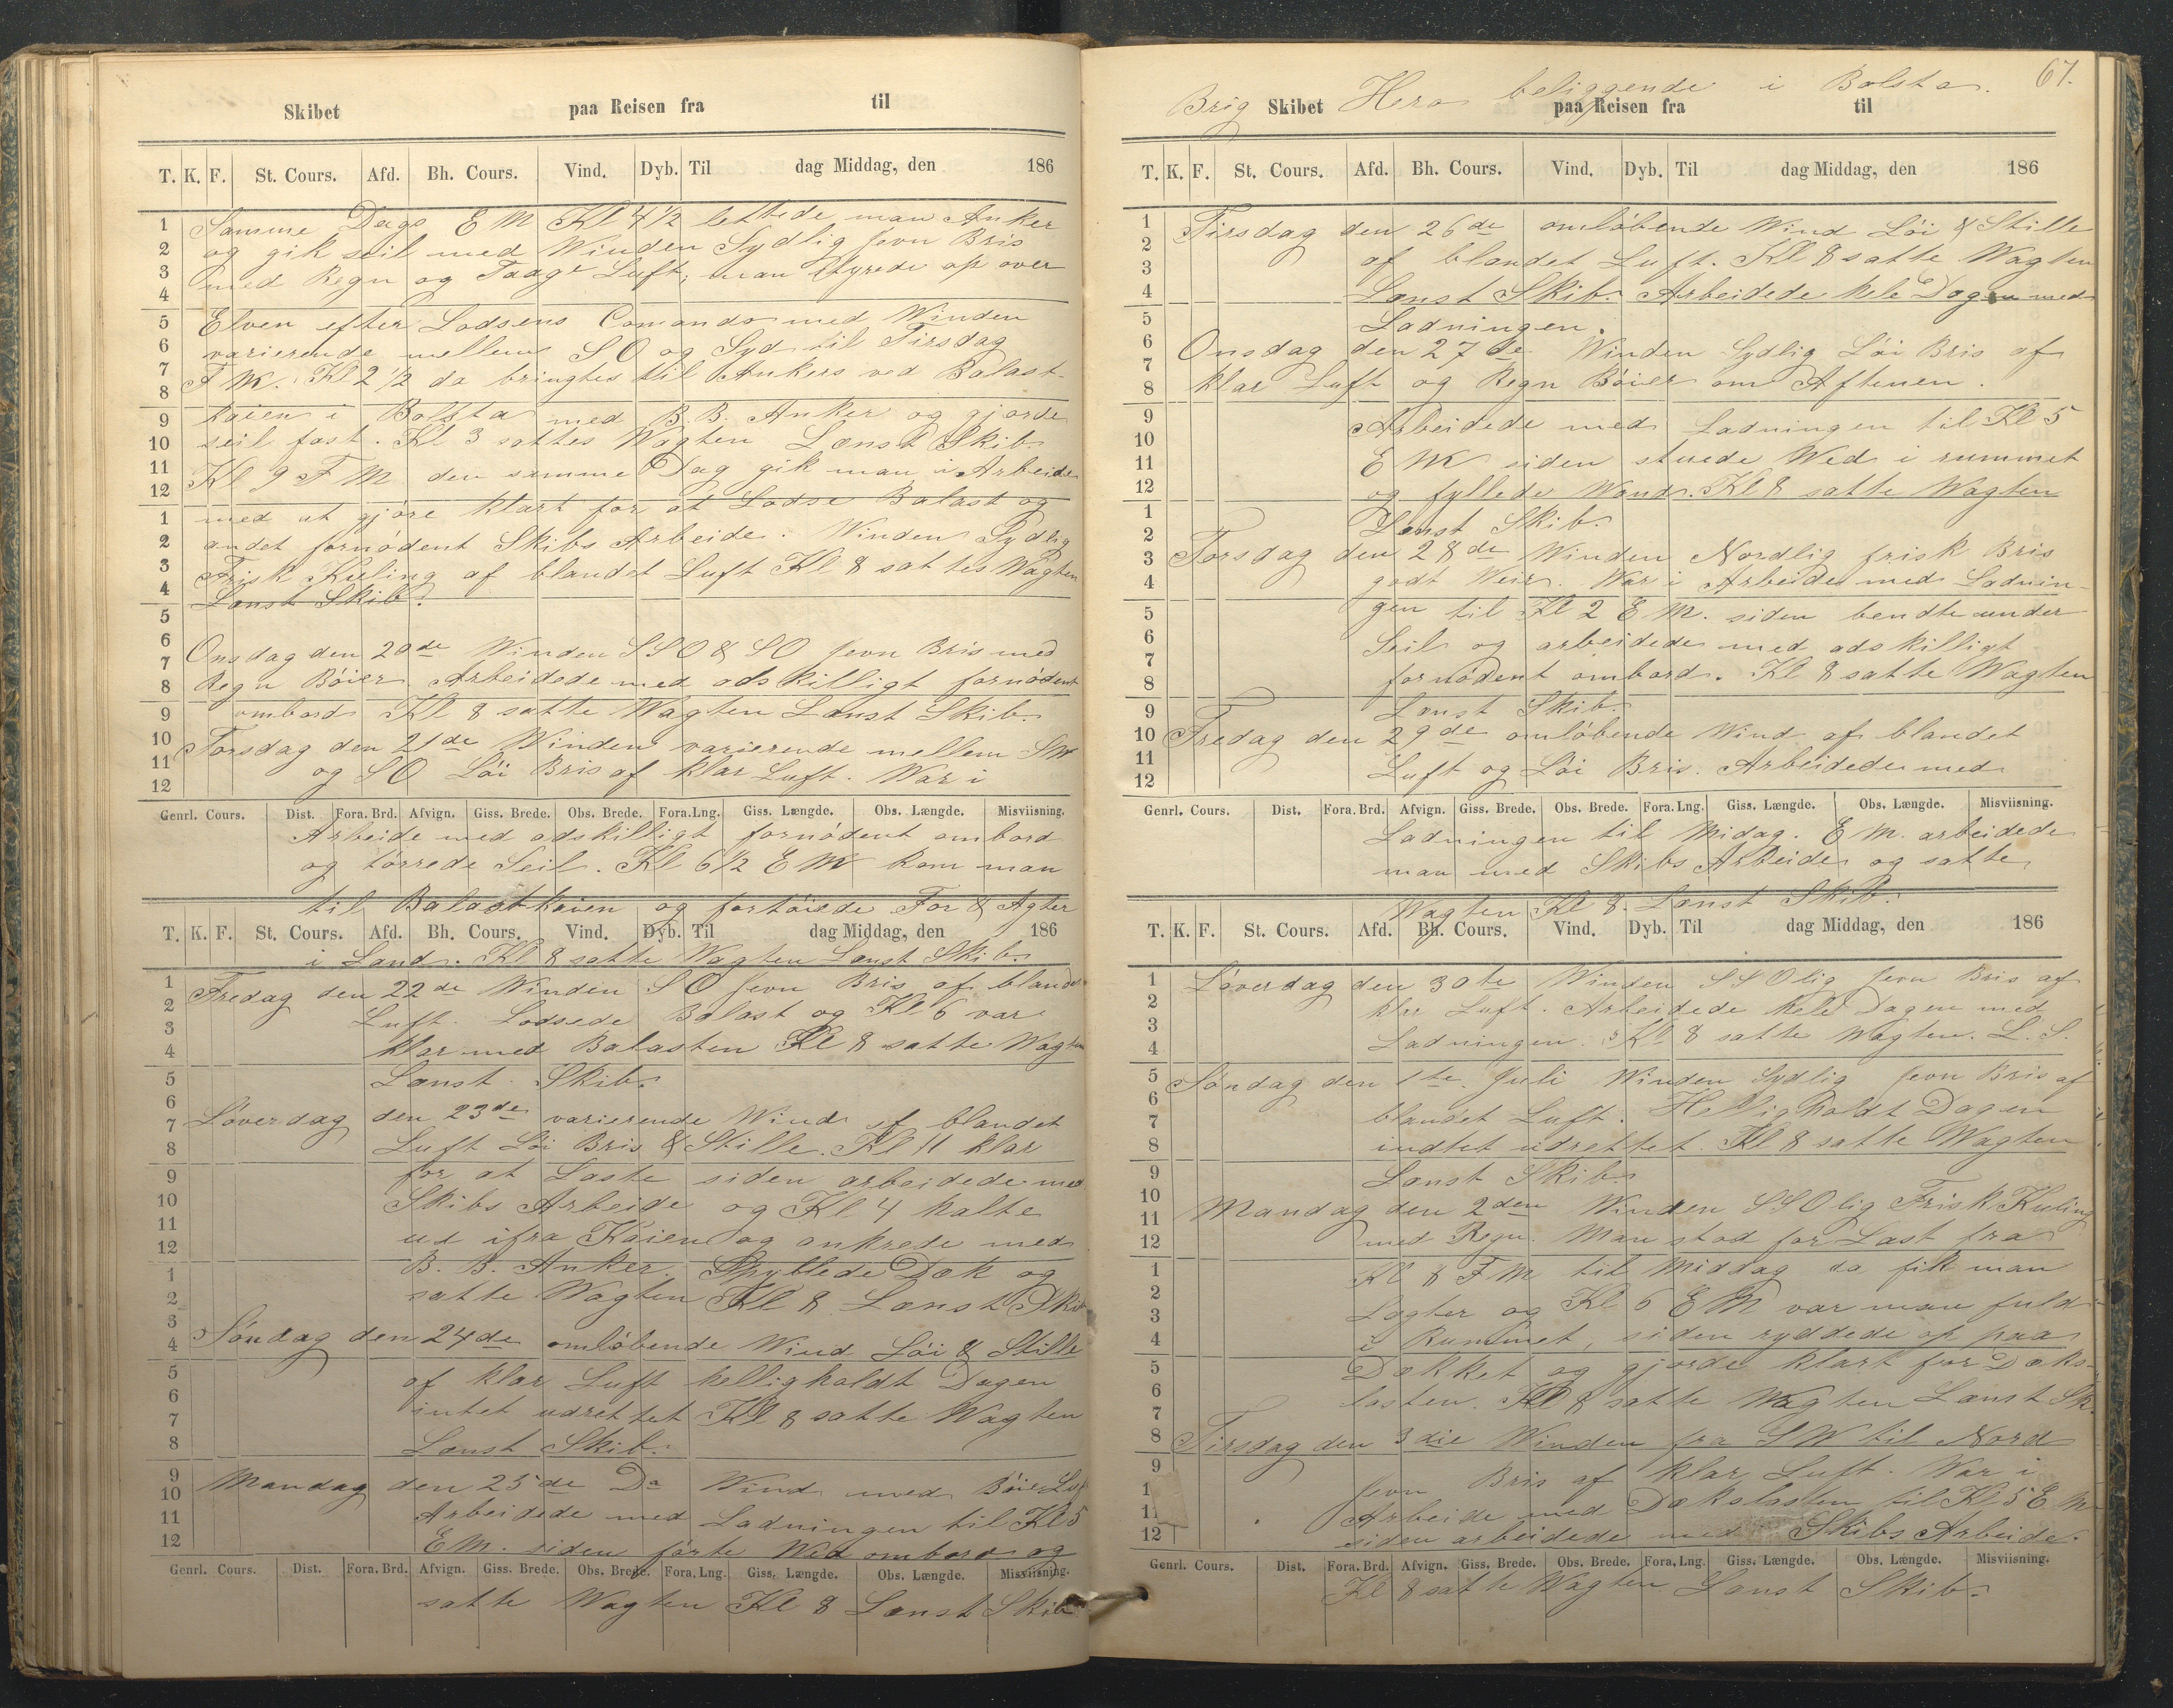 Skibet paa Reisen fra til
T. K. F. St. Cours. Afd. Bh. Cours. Vind. Dyb. Til dag Middag, den 186
Samme Dags E M Kl 4 1/2 lettede man Anker
og gik seil med Winden Sydlig Jevn Bris
med Regn og Taage Luft, man styrede op over
Elven efter Lodsens Comando med Winden
varierende mellem S O og Syd til Tirsdag
F M. Kl 2 1/2 da bringtes til Ankers ved Balast-
kaien i Bolsta med B. B. Anker og gjorde
seil fast. Kl 3 sattes Wagten Lænst Skib
Kl 9 F M den samme Dag gik man i Arbeide
med at gjøre klart for at Lodse Balast og
andet fornødent Skibs Arbeide. Winden Sydlig
Frisk Kuling af blandet Luft Kl 8 sattes Wagten
Lænst Skib.
Onsdag den 20de Winden S S O & S O Jevn Bris med
Regn Bøier. Arbeidede med adskilligt fornødent
ombord Kl 8 satte Wagten Lænst Skib.
Torsdag den 21de Winden varierende mellem S W
og S O Løi Bris af klar Luft. War i
Genrl. Cours. Dist. Fora. Brd. Afvign. Giss. Brede. Obs. Brede. Fora. Lng. Giss. Længde. Obs. Længde. Misviisning.
Arbeide med adskilligt fornødent ombord
og tørrede Seil. Kl 6 1/2 E M kom man
til Balastkaien og fortøiede For & Agter
T. K. F. St. Cours. Afd. Bh. Cours. Vind. Dyb. Til dag Middag, den 186
i Land. Kl 8 satte Wagten Lænst Skib.
Fredag den 22de Winden S O Jevn Bris af bland
Luft. Lodsede Balast og Kl 6 var
klar med Balasten Kl 8 satte Wagten
Lænst Skib.
Løverdag den 23de varierende Wind af blandet
Luft Løi Bris & Stille. Kl 11 klar
for at Laste siden arbeidede med
Skibs Arbeide og Kl 4 halte
ud ifra Kaien og ankrede med
B. B. Anker. Spyllede Dæk og
satte Wagten Kl 8 Lænst Skib
Søndag den 24de omløbende Wind Løi & Stille
af klar Luft helligholdt Dagen
intet udrettet Kl 8 satte Wagten
Lænst Skib.
Mandag den 25de Do Wind med Bøier Luf
Arbeidede med Ladningen til Kl 5
E M. siden førte Wed ombord og
Genrl. Cours. Dist. Fora. Brd. Afvign. Giss. Brede. Obs. Brede. Fora. Lng. Giss. Længde. Obs. Længde. Misviisning.
satte Wagten Kl 8 Lænst Skib
67.
Brig Skibet Hera beliggende i Bolsta.
paa Reisen fra til
T. K. F. St. Cours. Afd. Bh. Cours. Vind. Dyb. Til dag Middag, den 186
Tirsdag den 26de omløbende Wind Løi & Stille
af blandet Luft. Kl 8 satte Wagten
Lænst Skib. Arbeidede hele Dagen med
Ladningen.
Onsdag den 27de Winden Sydlig Løi Bris af
klar Luft og Regn Bøier om Aftenen.
Arbeidede med Ladningen til Kl 5
E M siden stuede Wed i rummet
og fyllede Wand. Kl 8 satte Wagten
Lænst Skib.
Torsdag den 28de Winden Nordlig frisk Bris
godt Weir. War i Arbeide med Ladnin-
gen til Kl 2 E M. siden bendte under
Seil og arbeidede med adskilligt
fornødent ombord. Kl 8 satte Wagten
Lænst Skib.
Fredag den 29de omløbende Wind af blandet
Luft og Løi Bris. Arbeidede med
Genrl. Cours. Dist. Fora. Brd. Afvign. Giss. Brede. Obs. Brede. Fora. Lng. Giss. Længde. Obs. Længde. Misviisning.
Ladningen til Midag. E M. arbeidede
man med Skibs Arbeide og satte
Wagten Kl 8. Lænst Skib.
T. K. F. St. Cours. Afd. Bh. Cours. Vind. Dyb. Til dag Middag, den 186
Løverdag den 30te Winden S S Olig Jevn Bris af
klar Luft. Arbeidede hele Dagen med
Ladningen. Kl 8 satte Wagten. L. S.
Søndag den 1te Juli Winden Sydlig Jevn Bris af
blandet Luft. Helligholdt Dagen
indtet udrettet. Kl 8 satte Wagten
Lænst Skib.
Mandag den 2den Winden S S Olig Frisk Kuling
med Regn. Man stod for Last fra
Kl 8 F M til Middag da fik man
Lægter og Kl 6 E M var man fuld
i Rummet, siden ryddede op paa
Dækket og gjorde klart for Dæks-
lasten. Kl 8 satte Wagten Lænst Sk.
Tirsdag den 3die Winden fra S W til Nord
Jevn Bris af klar Luft. War i
Arbeide med Dækslasten til Kl 5 E M
siden arbeidede med Skibs Arbeide.
Genrl. Cours. Dist. Fora. Brd. Afvign. Giss. Brede. Obs. Brede. Fora. Lng. Giss. Længde. Obs. Længde. Misviisning.
Kl 8 satte Wagten Lænst Skib.